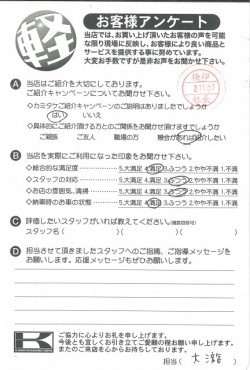 軽
お客様アンケート
当店では、お買い上げ頂いたお客様の声を可能な
な限り現場に反映し、お客様により良い商品と
サービスを提供する事に努めています。
大変お手数ですが是非お声をお聞かせ下さい。
A 当店はご紹介を大切にしております。
ご紹介キャンペーンについてお聞かせ下さい。
◇カミタケご紹介キャンペーンのご説明はありましたでしょうか
はい いいえ
◇具体的にご紹介頂ける方との関係をお聞かせ頂けますでしょうか
ご親族 ご友人 職場の方 機会があれば紹介したい
B 当店を実際にご利用になった印象をお聞かせ下さい。
◇総合的な満足度 5.大満足 4.満足 3.ふつう 2.やや不満 1.不満
◇スタッフの対応 5.大満足 4.満足 3.ふつう 2.やや不満 1.不満
◇お店の雰囲気、清掃 5.大満足 4.満足 3.ふつう 2.やや不満 1.不満
◇納車時のお車の状態 5.大満足 4.満足 3.ふつう 2.やや不満 1.不満
C 評価したいスタッフがいれば教えてください。(複数回答可)
スタッフ名( )( )( )
D 担当させて頂きましたスタッフへのご指摘、ご指導メッセージを
お願いします。応援メッセージもぜひお願いします。
K
ご協力に心よりお礼を申し上げます。
今後とも宜しくお引き立てご愛顧の程お願い申し上げます。
またのご来店を心からお待ちしております。
担当( 大瀧 )